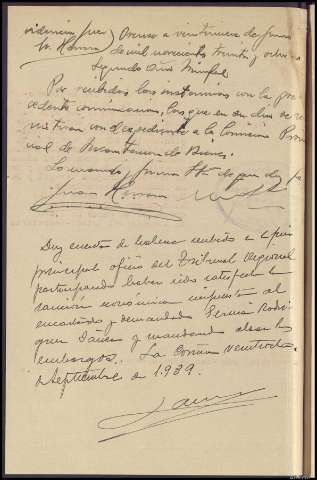 videncia Juez Orense a veintinueve de Junio
Sr. Herrera de mil novecientos treinta y ocho
Segundo Año Triunfal
Por recibidas las instancias con la pre-
cedente comunicacion, las que en su dia se re-
mitiran con el expediente a la Comision Provin-
cial de Incautacion de Bienes.
Lo mando y firma SSª de que doy fe
Juan Herrera
Doy cuenta de haberse recibido en la pieza
principal oficio del Tribunal Regional
participando haber sido satisfecha la
sanción economica impuesta al
encartado y demandado German Rodri
guez Yañez y mandando alzar los
embargos. La Coruña veintiocho
de Septiembre de 1.939.